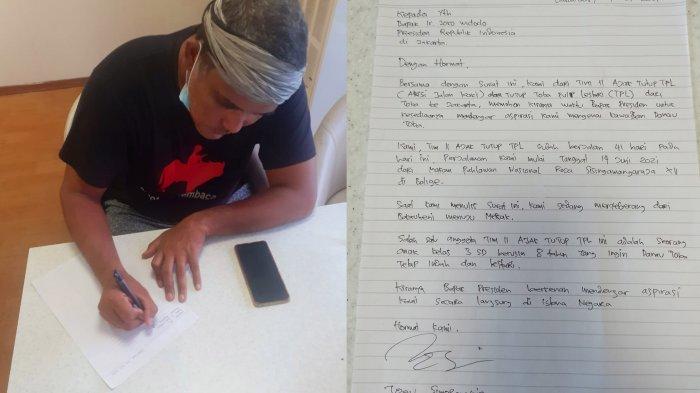 Kepada Yth
Bapak Ir. Joko Widodo
Presiden Republik Indonesia
di Jakarta.
Dengan Hormat.
Bersama dengan Surat ini, kami dari Tim 11 AJAK TUTUP TPL
(Aksi Jalan kaki) TUTUP Toba Pulp Lestari (TPL) dari
Toba ke Jakarta, memohon kiranya waktu Bapak Presiden untuk
kesediaannya mendengar aspirasi kami mengenai kawasan Danau
Toba.
Kami Tim 11 AJAK TUTUP TPL sudah berjalan 41 hari pada
hari ini. Perjalanan kami mulai Tanggal 14 Juni 2021
dari Makam Pahlawan Nasional Raja Sisingamangaraja XII
di Balige.
Saat kami menulis surat ini, kami sedang menyeberang dari
Bakauheni menuju Merak.
Salah satu anggota Tim 11 AJAK TUTUP TPL ini adalah seorang
anak kelas 3 SD berusia 8 tahun yang ingin Danau Toba
tetap indah dan lestari.
Kiranya Bapak Presiden berkenan mendengar aspirasi
kami secara langsung di Istana Negara
Hormat kami,